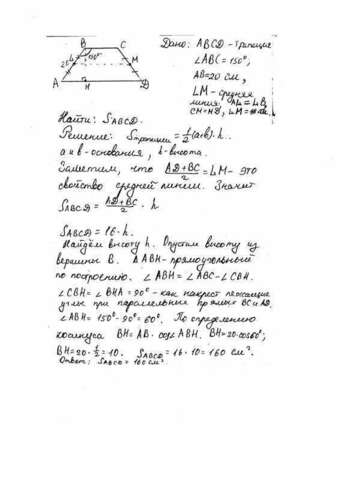 B C
20 150°
L M
A H D
Дано: ABCD - трапеция
∠ABC = 150°,
AB = 20 см,
LM - средняя
линия. AL = LB,
CM = MD, LM =
Найти: S_ABCD.
Решение: S трапеции = ½(a+b)·h.
a и b - основания, h - высота.
Заметим, что (AD+BC)/2 = LM - это
свойство средней линии. Значит
S_ABCD = (AD+BC)/2 · h
S_ABCD = 16·h.
Найдём высоту h. Опустим высоту из
вершины B. △ABH - прямоугольный
по построению. ∠ABH = ∠ABC - ∠CBH.
∠CBH = ∠BHA = 90° - как накрест лежащие
углы при параллельных прямых BC и AD.
∠ABH = 150° - 90° = 60°. По определению
косинуса BH = AB · cos∠ABH. BH = 20·cos60°;
BH = 20·½ = 10. S_ABCD = 16·10 = 160 см².
Ответ: S_ABCD = 160 см²